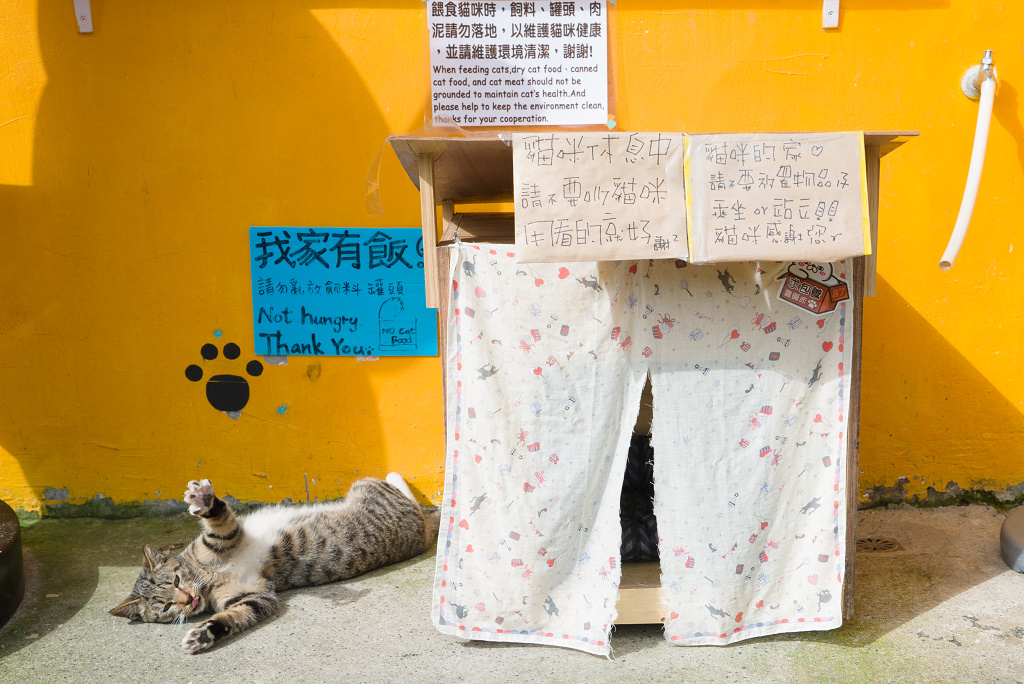 餵食貓咪時，飼料、罐頭、肉
泥請勿落地，以維護貓咪健康
，並請維護環境清潔，謝謝!
When feeding cats,dry cat food、canned
cat food, and cat meat should not be
grounded to maintain cat's health.And
please help to keep the environment clean,
thanks for your cooperation.
貓咪休息中
請不要叫貓咪
用看的就好 謝²
貓咪的家♡
請不要放置物品及
乘坐 or 站立
貓咪感謝您
我家有飯
請勿亂放飼料 罐頭
Not hungry
Thank You
NO Cat
Food